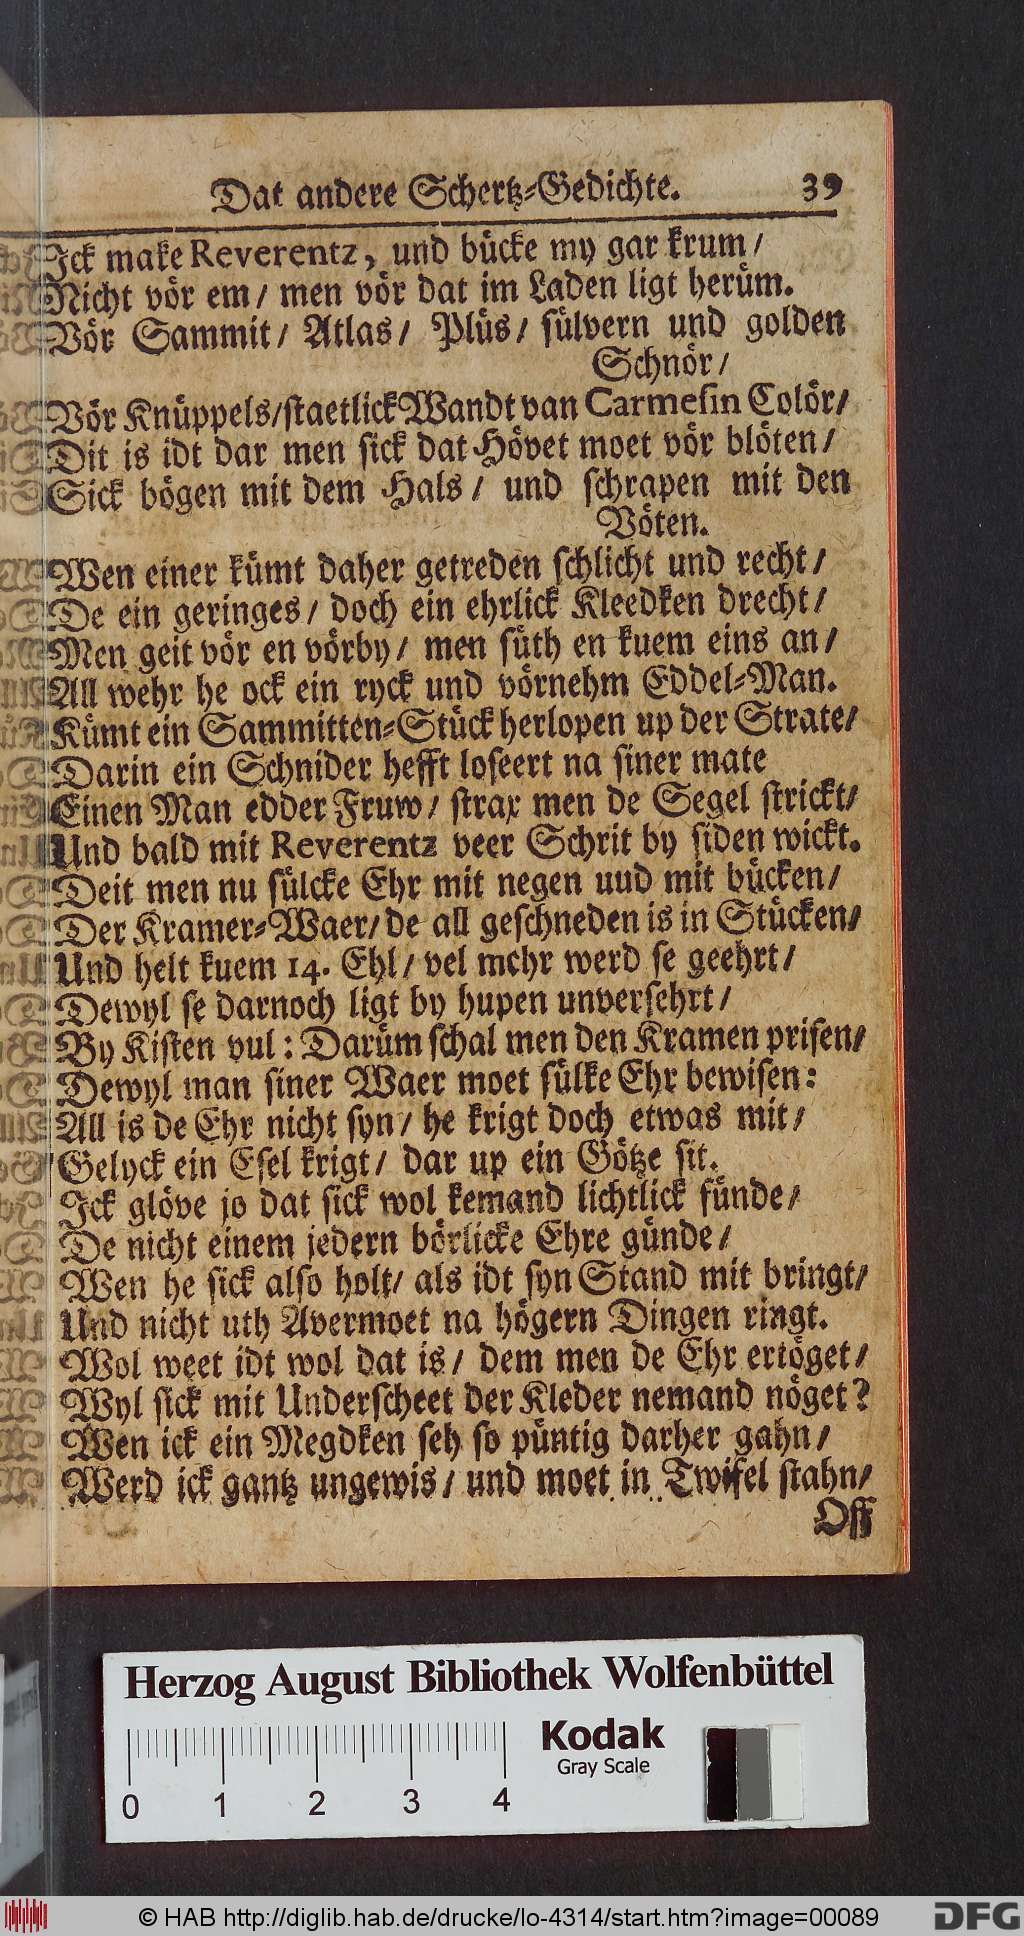 Dat andere Schertz-Gedichte. 39
Ick make Reverentz, und bücke my gar krum/
Nicht vör em/ men vör dat im Laden ligt herüm.
Vör Sammit/ Atlas/ Plüs/ sülvern und golden
Schnör/
Vör Knüppels/staetlick Wandt van Carmesin Colör/
Dit is idt dar men sick dat Hövet moet vör blöten/
Sick bögen mit dem Hals/ und schrapen mit den
Vöten.
Wen einer kümt daher getreden schlicht und recht/
De ein geringes/ doch ein ehrlick Kleedken drecht/
Men geit vör en vörby/ men süth en kuem eins an/
All wehr he ock ein ryck und vörnehm Eddel-Man.
Kümt ein Sammitten-Stück herlopen up der Strate/
Darin ein Schnider hefft loseert na siner mate
Einen Man edder Fruw/ strax men de Segel strickt/
Und bald mit Reverentz veer Schrit by siden wickt.
Deit men nu sülcke Ehr mit negen uud mit bücken/
Der Kramer-Waer/ de all geschneden is in Stücken/
Und helt kuem 14. Ehl/ vel mehr werd se geehrt/
Dewyl se darnoch ligt by hupen unversehrt/
By Kisten vul: Darüm schal men den Kramen prisen/
Dewyl man siner Waer moet sülke Ehr bewisen:
All is de Ehr nicht syn/ he krigt doch etwas mit/
Gelyck ein Esel krigt/ dar up ein Götze sit.
Ick glöve jo dat sick wol kemand lichtlick fünde/
De nicht einem jedern börlicke Ehre günde/
Wen he sick also holt/ als idt syn Stand mit bringt/
Und nicht uth Avermoet na högern Dingen ringt.
Wol weet idt wol dat is/ dem men de Ehr ertöget/
Wyl sick mit Underscheet der Kleder nemand nöget?
Wen ick ein Megdken seh so püntig darher gahn/
Werd ick gantz ungewis/ und moet in Twifel stahn/
Off
Herzog August Bibliothek Wolfenbüttel
Kodak
Gray Scale
0 1 2 3 4
© HAB http://diglib.hab.de/drucke/lo-4314/start.htm?image=00089
DFG